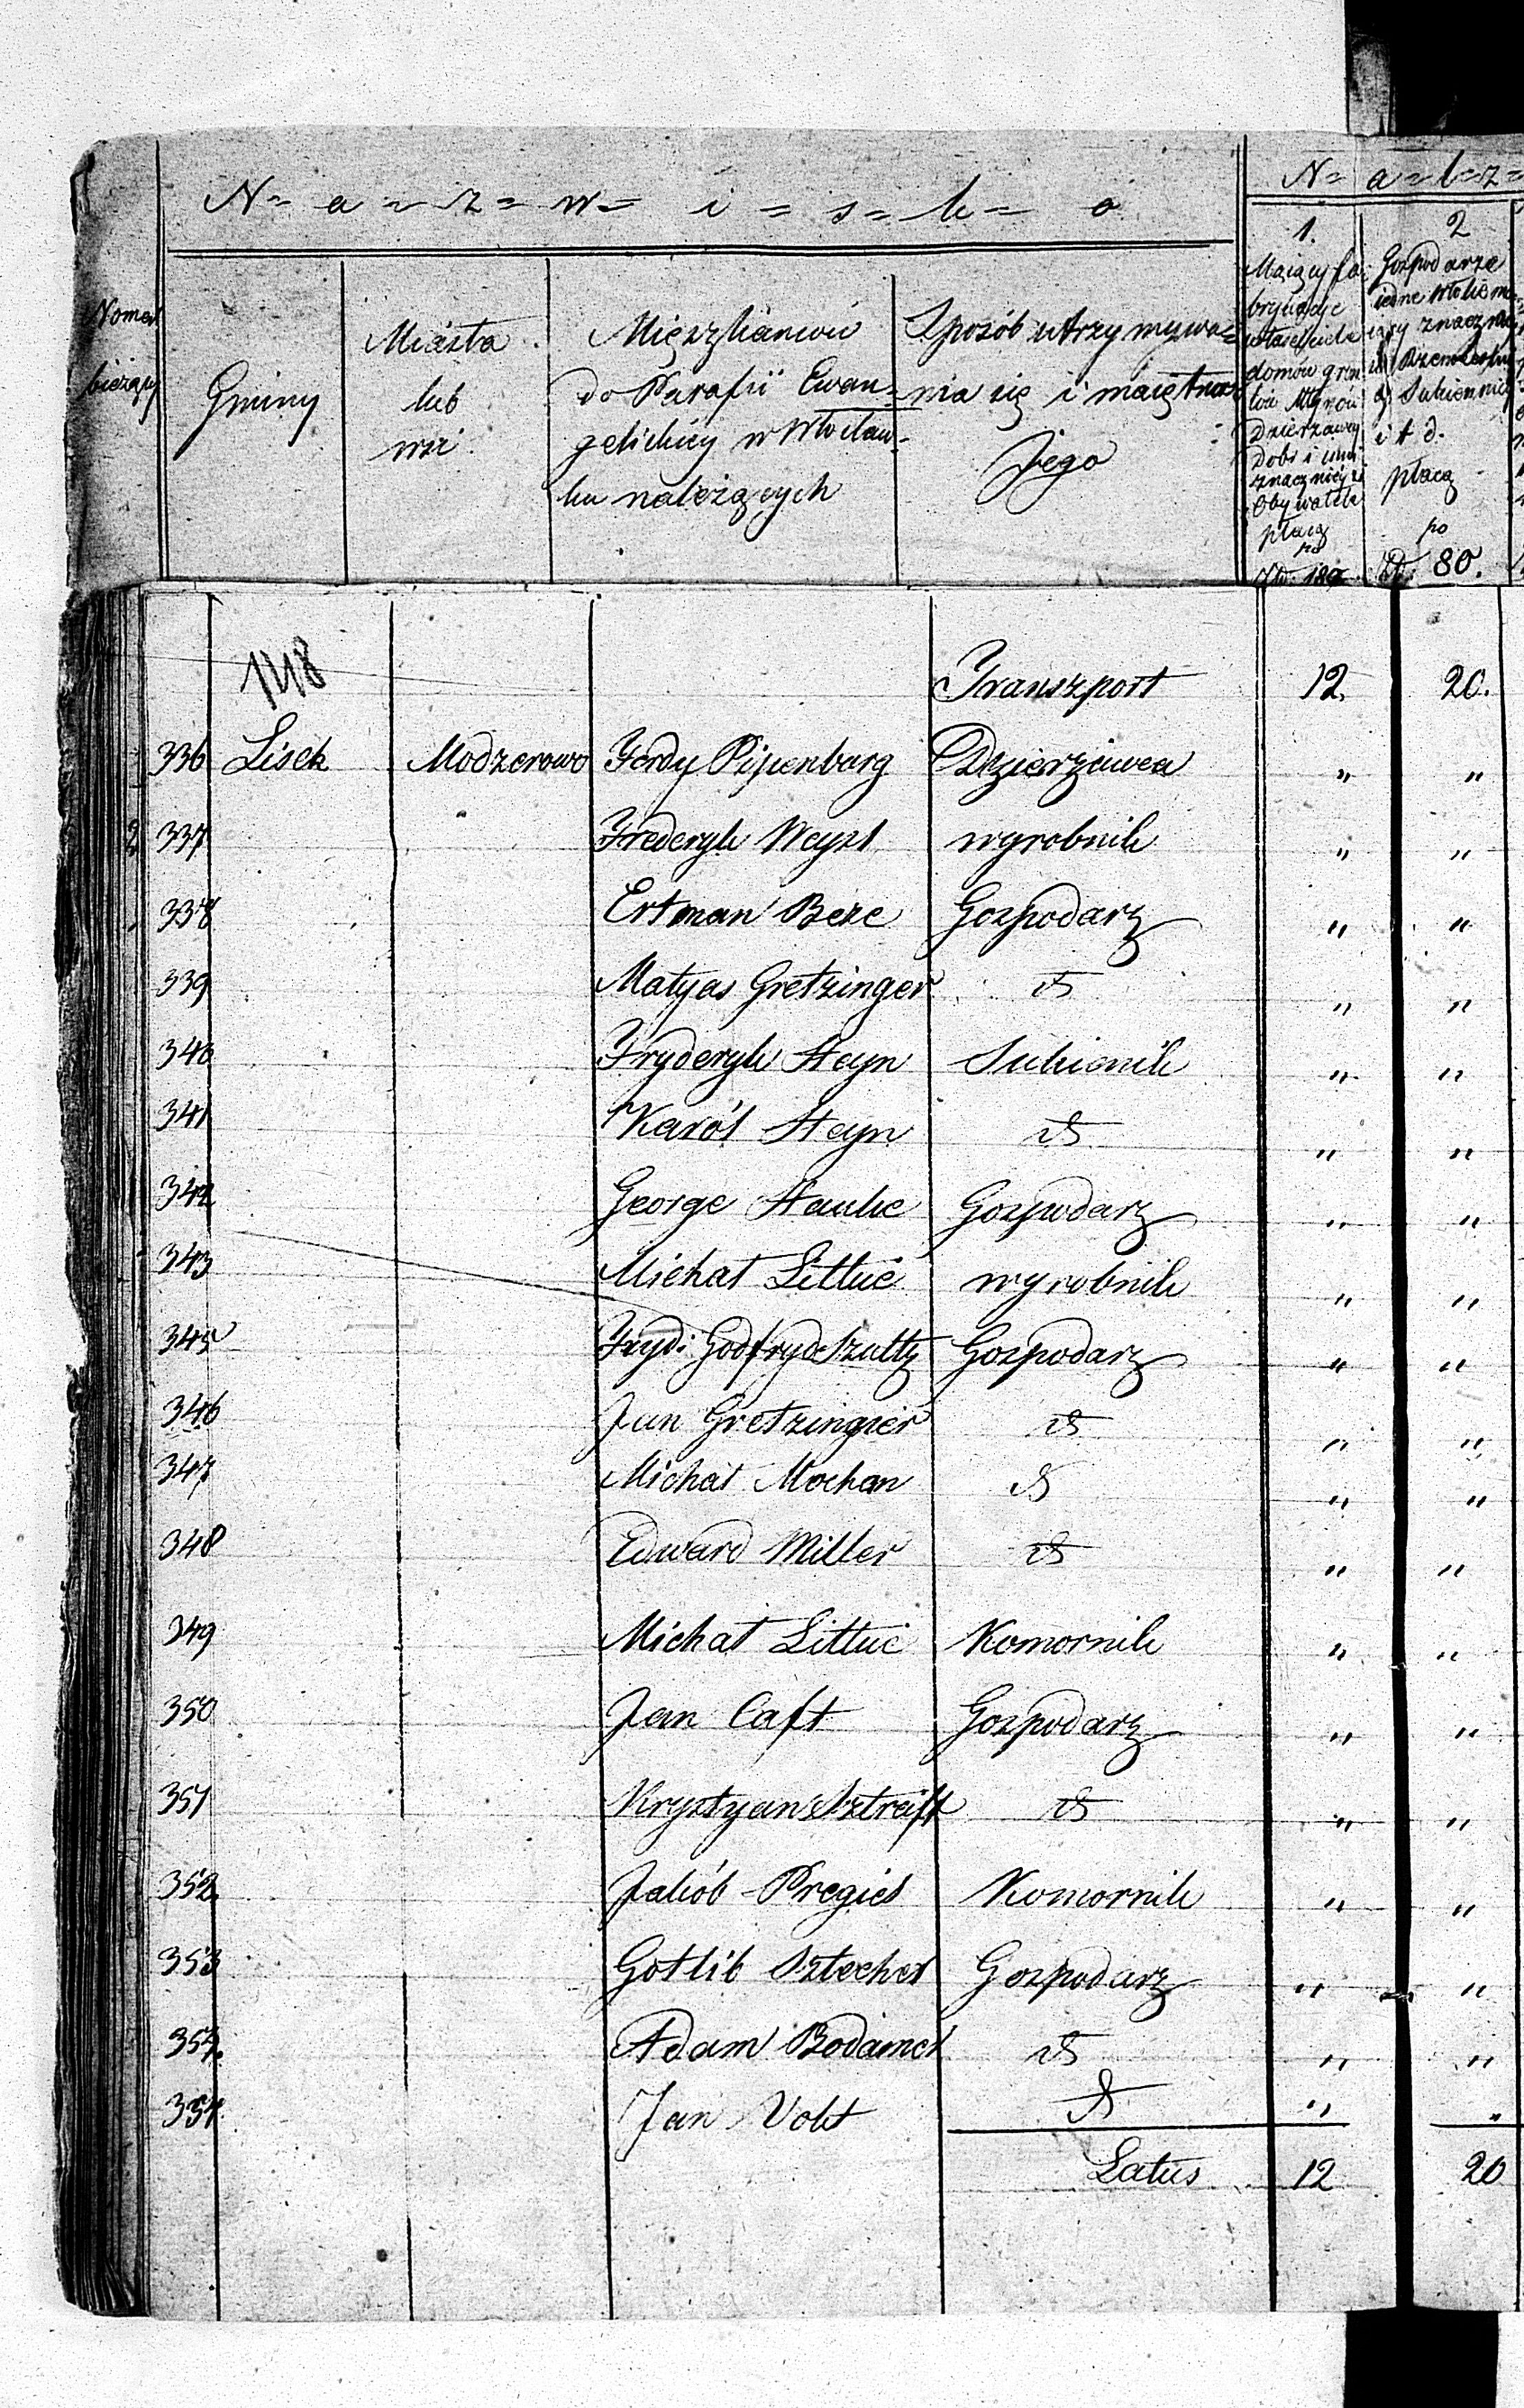 N = a = z = w = i = s = k = o
N = a = l = z =
Numer
bieżący
Gminy
Miasta
lub
wsi
Mięszkańców
do Parafii Ewan=
gelickiéy w Włocław=
ku należących
Sposób utrzymywa=
nia się i maiętność
Jego
1.
Maiący fa
brykacje
właściciele
domów grun
tów Młynów
Dzierżawcy
Dobr i inni
znacznieysi
Obywatele
płacą
po
2
Gospodarze
płacą
i t d.
po
80.
1118
Transzport 12. 20.
336 Lisek Modzerowo Ferdy Pipenburg Dzierżawca " "
337 Frederyk Weyst wyrobnik " "
338 Ertman Beze Gospodarz " "
339 Matyas Gretzinger dt " "
340 Fryderyk Steyn Sukienik " "
341 Karól Steyn dt " "
342 George Stanke Gospodarz " "
343 Michał Littke wyrobnik " "
345 Fryd: Godfryd Szultz Gospodarz " "
346 Jan Gretzingier dt " "
347 Michał Mochan dt " "
348 Edward Miller dt " "
349 Michał Littke Komornik " "
350 Jan Caft Gospodarz " "
351 Krysztyan Sztreift dt " "
352. Jakób Pregiel Komornik " "
353 Gotlib Sztecher Gospodarz " "
354. Adam Bodamer dt " "
Jan Volt dt " "
Latus 12 20